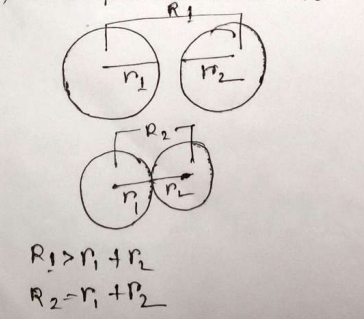 R1
r1 r2
R2
r1 r2
R1 > r1 + r2
R2 = r1 + r2